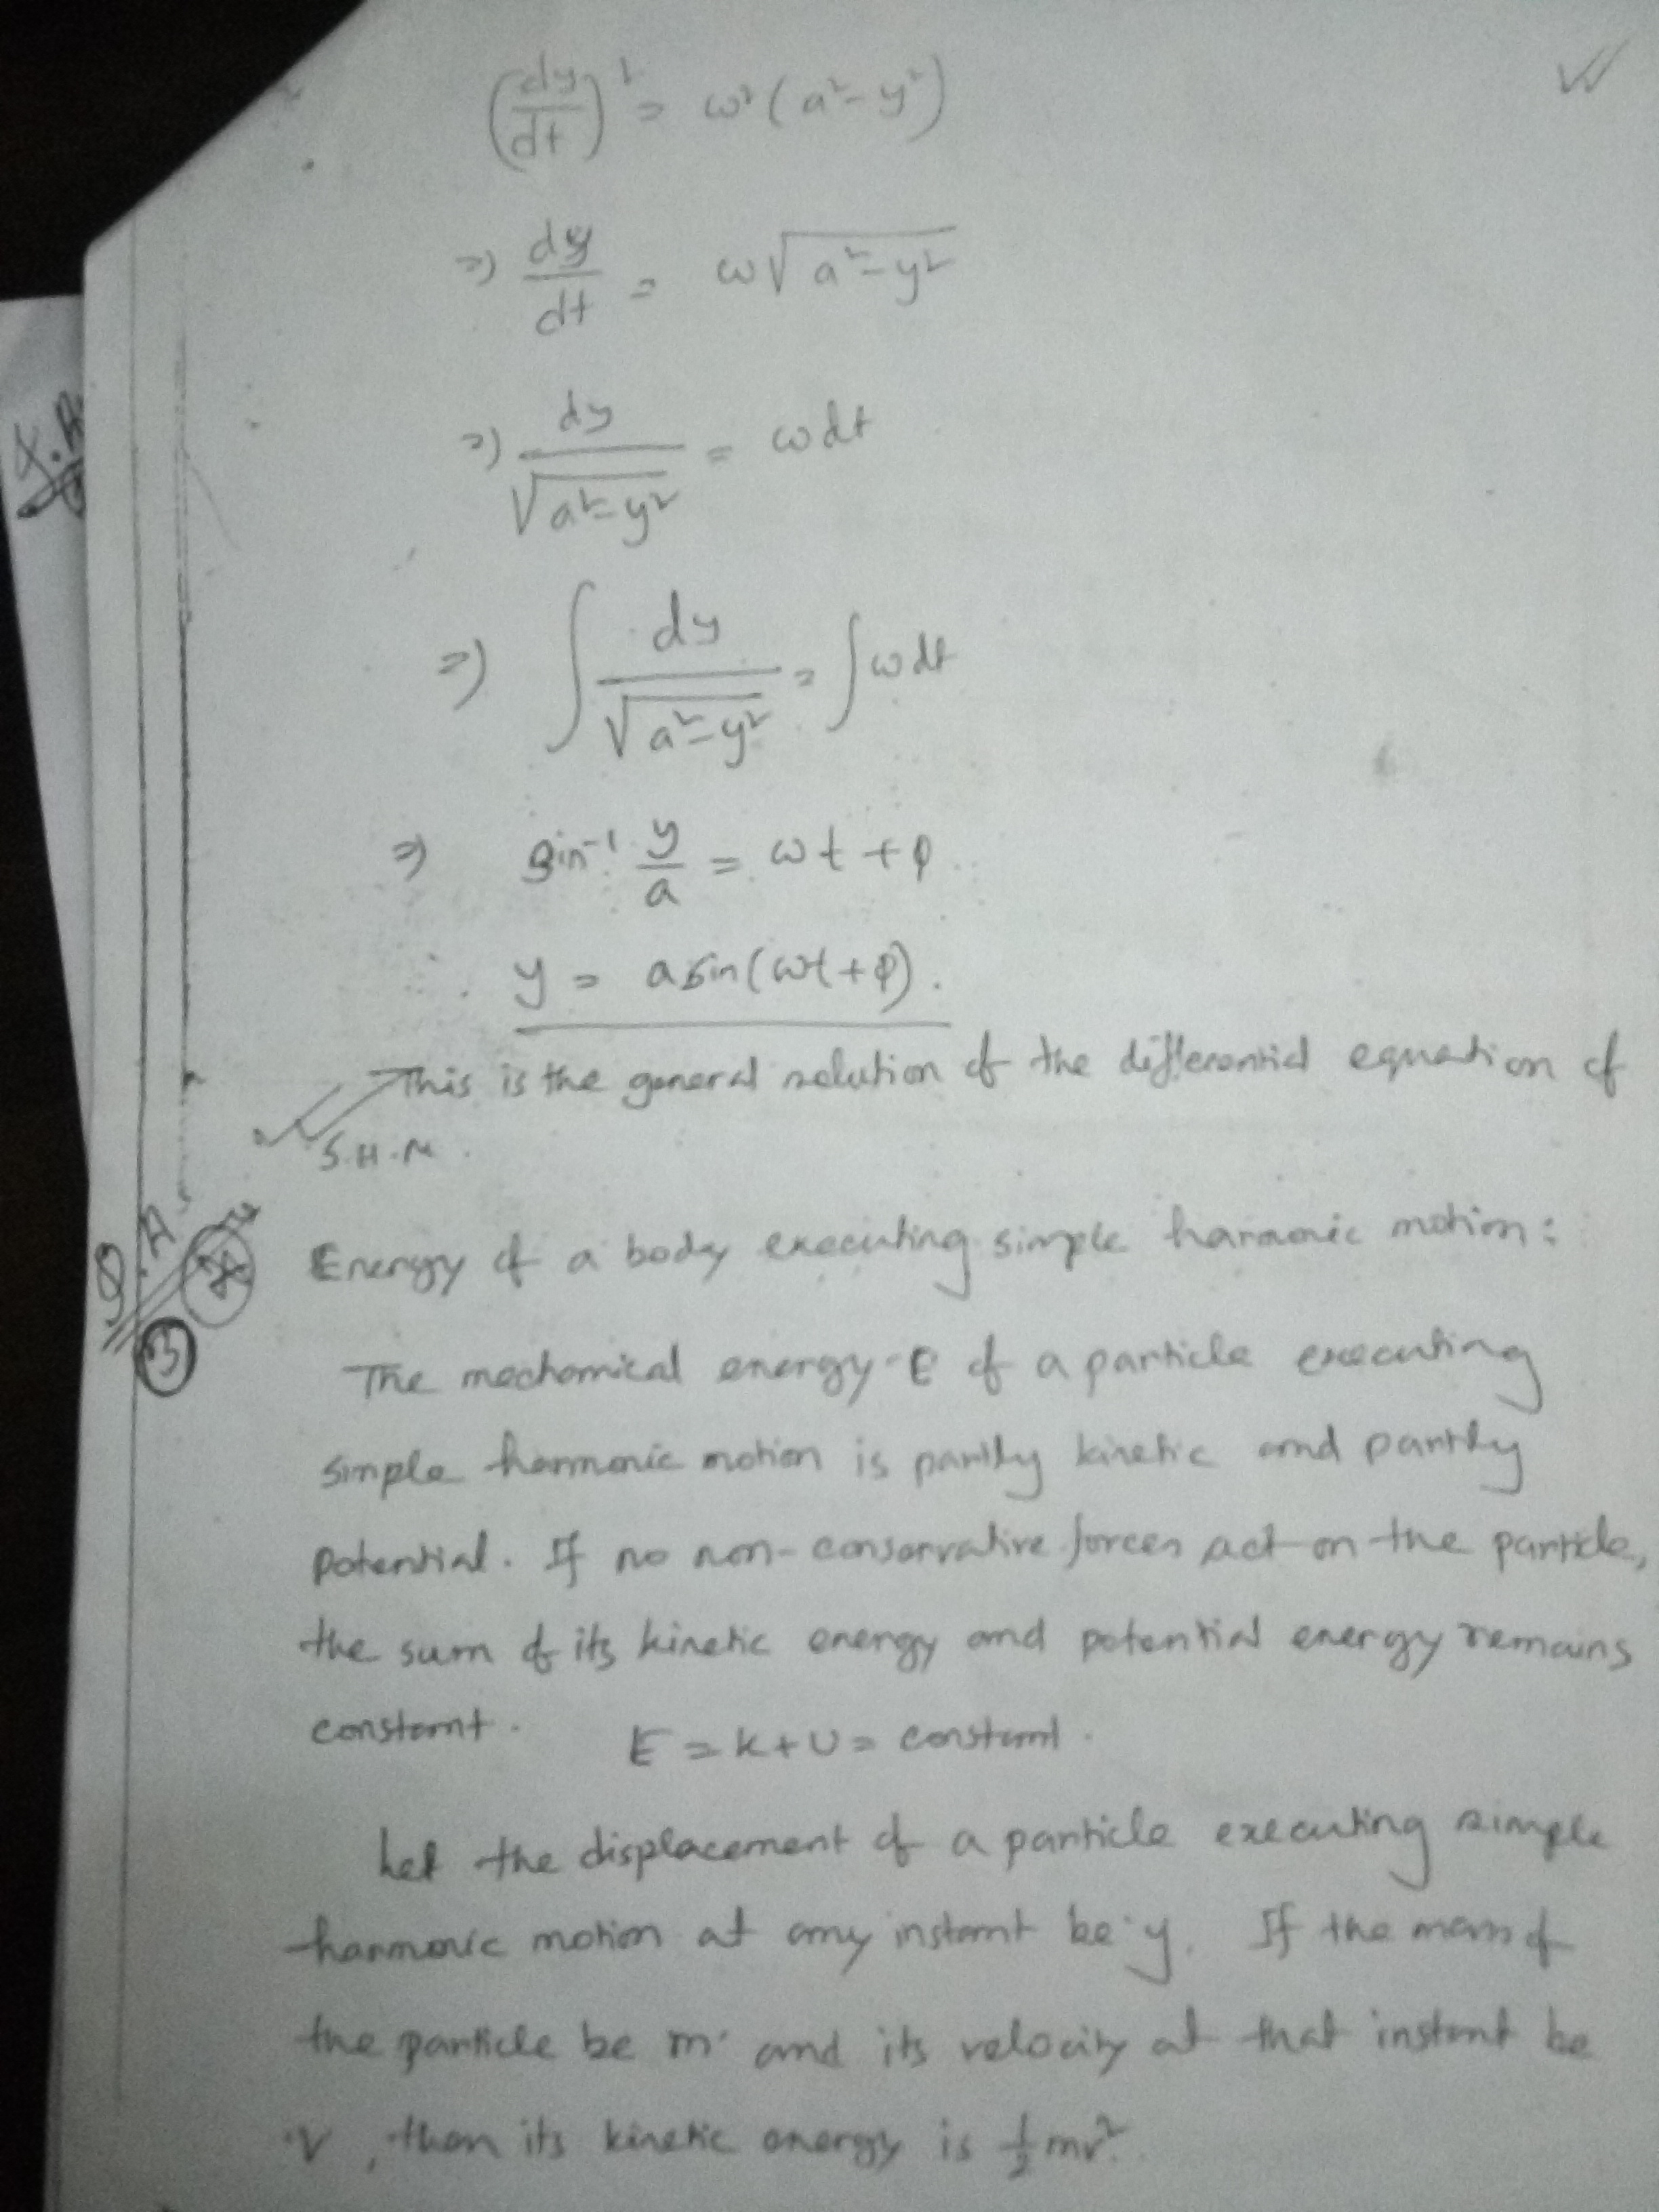 (dy/dt)² = ω²(a²-y²)
⇒) dy/dt = ω√(a²-y²)
⇒) dy/√(a²-y²) = ωdt
⇒) ∫ dy/√(a²-y²) = ∫ωdt
⇒ Sin⁻¹ y/a = ωt+φ
y = a sin(ωt+φ).
This is the general solution of the differential equation of
S.H.M.
Q.A
3
Energy of a body executing simple harmonic motion:
The mechanical energy E of a particle executing
simple harmonic motion is partly kinetic and partly
potential. If no non-conservative forces act on the particle,
the sum of its kinetic energy and potential energy remains
constant. E = K+U = constant.
Let the displacement of a particle executing simple
harmonic motion at any instant be y. If the mass of
the particle be m and its velocity at that instant be
v, then its kinetic energy is ½mv².